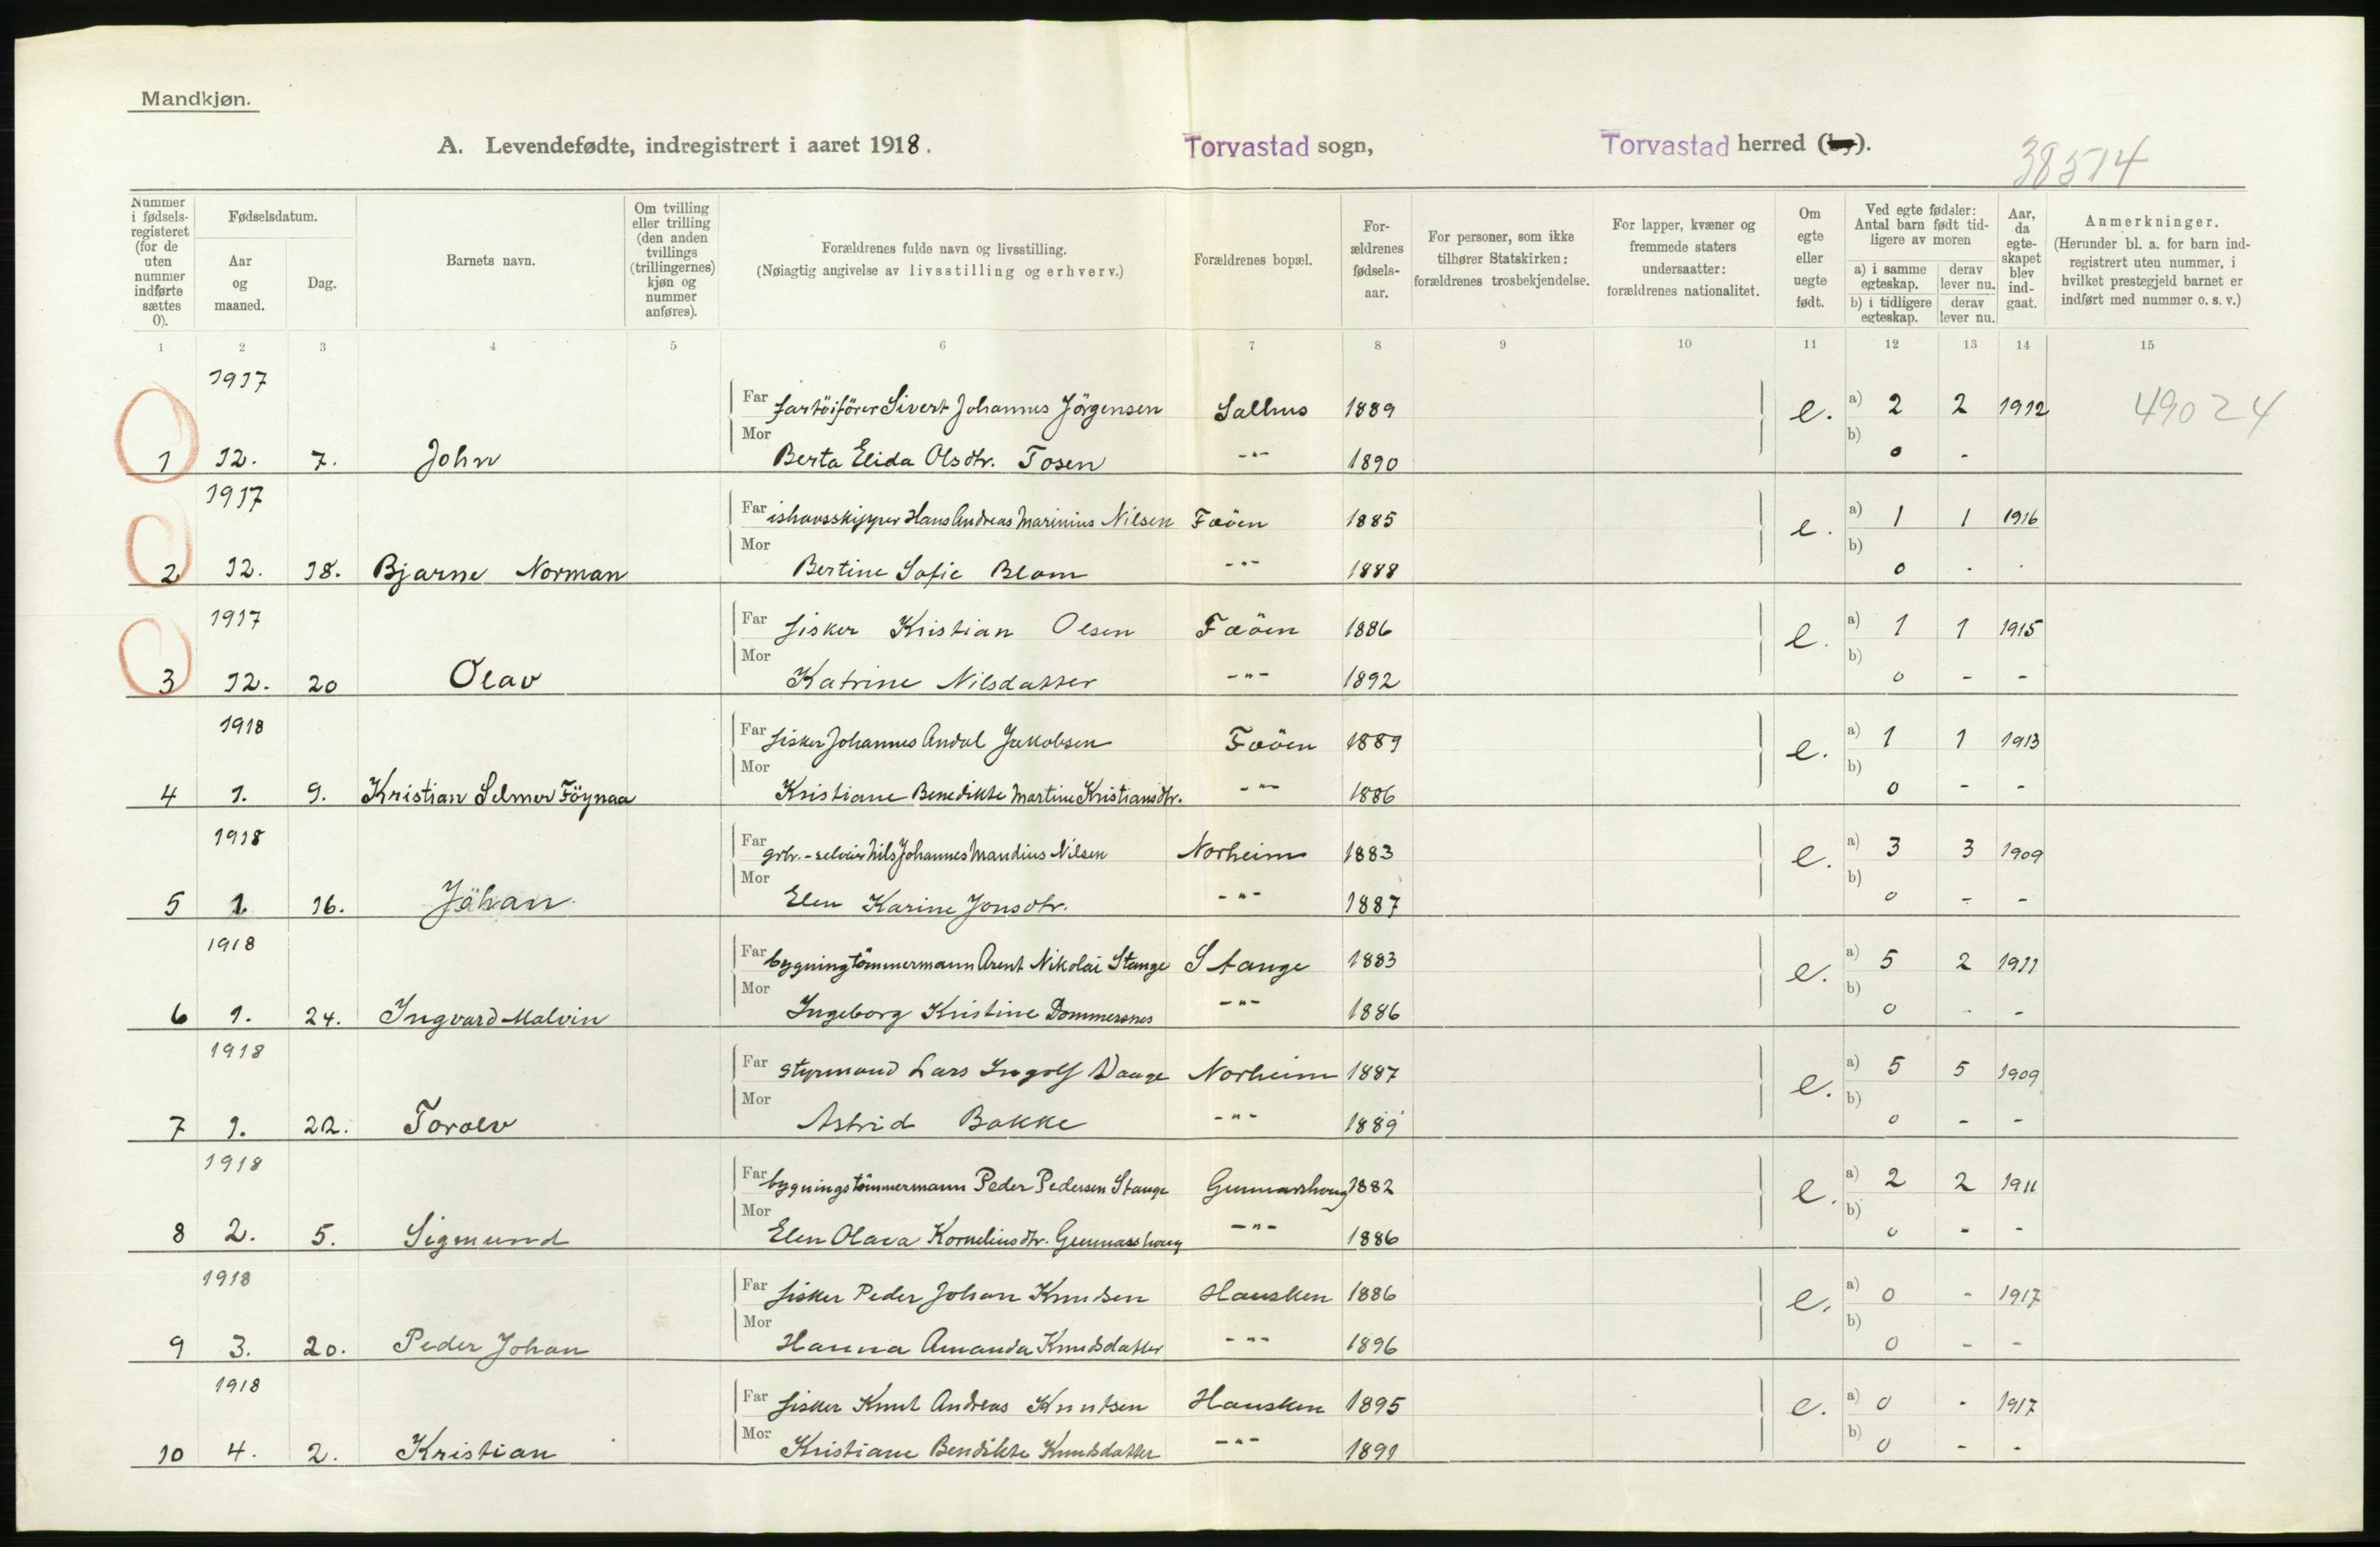 Mandkjøn.
A. Levendefødte, indregistrert i aaret 1918. Torvastad sogn, Torvastad herred (by).
38514
Nummer i fødselsregisteret (for de uten nummer indførte sættes 0).
Fødselsdatum.
Aar og maaned.
Dag.
Barnets navn.
Om tvilling eller trilling (den anden tvillings (trillingernes) kjøn og nummer anføres).
Forældrenes fulde navn og livsstilling.
(Nøiagtig angivelse av livsstilling og erhverv.)
Forældrenes bopæl.
Forældrenes fødselsaar.
For personer, som ikke tilhører Statskirken: forældrenes trosbekjendelse.
For lapper, kvæner og fremmede staters undersaatter: forældrenes nationalitet.
Om egte eller uegte født.
Ved egte fødsler: Antal barn født tidligere av moren
a) i samme egteskap. derav lever nu.
b) i tidligere egteskap. derav lever nu.
Aar, da egteskapet blev indgaat.
Anmerkninger.
(Herunder bl. a. for barn indregistrert uten nummer, i hvilket prestegjeld barnet er indført med nummer o. s. v.)
1 2 3 4 5 6 7 8 9 10 11 12 13 14 15
1917 Far fartöiförer Sivert Johannes Jörgensen Salhus 1889 e. a) 2 2 1912 49024
1 12. 7. John Mor Berta Elida Olsdtr. Tosen -"- 1890 b) 0 -
1917 Far ishavsskipper Hans Andreas Marinius Nilsen Fæöen 1885 e. a) 1 1 1916
2 12. 18. Bjarne Norman Mor Bertine Sofie Blom -"- 1888 b) 0 - -
1917 Far fisker Kristian Olsen Fæöen 1886 e. a) 1 1 1915
3 12. 20 Olav Mor Katrine Nilsdatter -"- 1892 b) 0 - -
1918 Far fisker Johannes Andal Jakobsen Fæöen 1889 e. a) 1 1 1913
4 1. 9. Kristian Selmer Föynaa Mor Kristiane Benedikte Martine Kristiansdtr. -"- 1886 b) 0 - -
1918 Far grbr.-selveier Nils Johannes Mandius Nilsen Norheim 1883 e. a) 3 3 1909
5 1 16. Johan Mor Elen Karine Jonsdtr. -"- 1887 b) 0 - -
1918 Far bygningtömmermann Arent Nikolai Stange Stange 1883 e. a) 5 2 1911
6 1. 24. Ingvard Malvin Mor Ingeborg Kristine Dommersnes -"- 1886 b) 0 - -
1918 Far styrmand Lars Ingolf Vaage Norheim 1887 e. a) 5 5 1909
7 1. 22. Torolv Mor Astrid Bakke -"- 1889 b) 0 - -
1918 Far bygningstömmermann Peder Pedersen Stange Gunnarshoug 1882 e. a) 2 2 1911
8 2. 5. Sigmund Mor Elen Olava Korneliusdtr. Gunnarshoug -"- 1886 b) 0 - -
1918 Far fisker Peder Johan Knudsen Hausken 1886 e. a) 0 - 1917
9 3. 20. Peder Johan Mor Hanna Amanda Knudsdatter -"- 1896 b) 0 - -
1918 Far fisker Knut Andreas Knutsen Hausken 1895 e. a) 0 - 1917
10 4. 2. Kristian Mor Kristiane Bendikte Knudsdatter -"- 1891 b) 0 - -